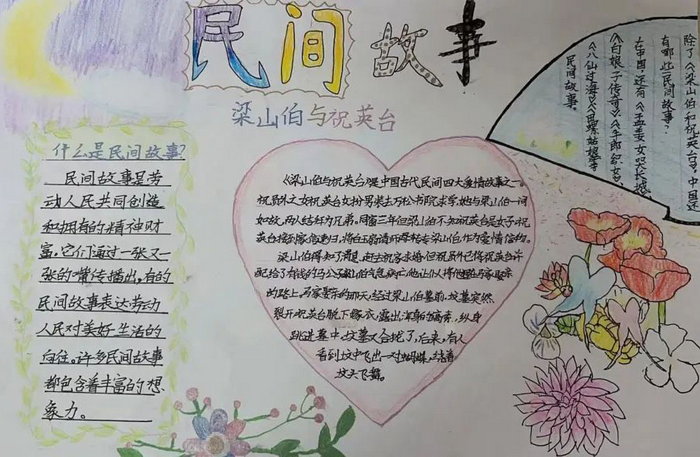 民间故事
梁山伯与祝英台
什么是民间故事?
民间故事是劳
动人民共同创造
和拥有的精神财
富,它们通过一张又一
张的嘴传播出。有的
民间故事表达劳动
人民对美好生活的
向往。许多民间故事
都包含着丰富的想
象力。
《梁山伯与祝英台》是中国古代民间四大爱情故事之一。
祝员外之女祝英台女扮男装去万松书院求学,她与梁山伯一同
如故,两人结拜为兄弟。同窗三年但梁山伯不知祝英台是女子。祝
英台接到家信
梁山伯得知了真
配给了有钱的马公子,梁山伯气急病亡他让
的路上。马家娶亲的那天,经过梁山伯墓前,坟墓突然
裂开,祝英台脱下嫁衣,露出洁白的 纵身
跳进墓中,坟墓又合拢了,后来,有人
看到坟中飞出一对蝴蝶,绕着
坟头飞舞。
除了《梁山伯和祝英台》,中国还
有哪些民间故事?
在中国还有《孟姜女哭长城》
《白娘子传奇》《牛郎织女》、
《八仙过海》《田螺姑娘》等
民间故事。